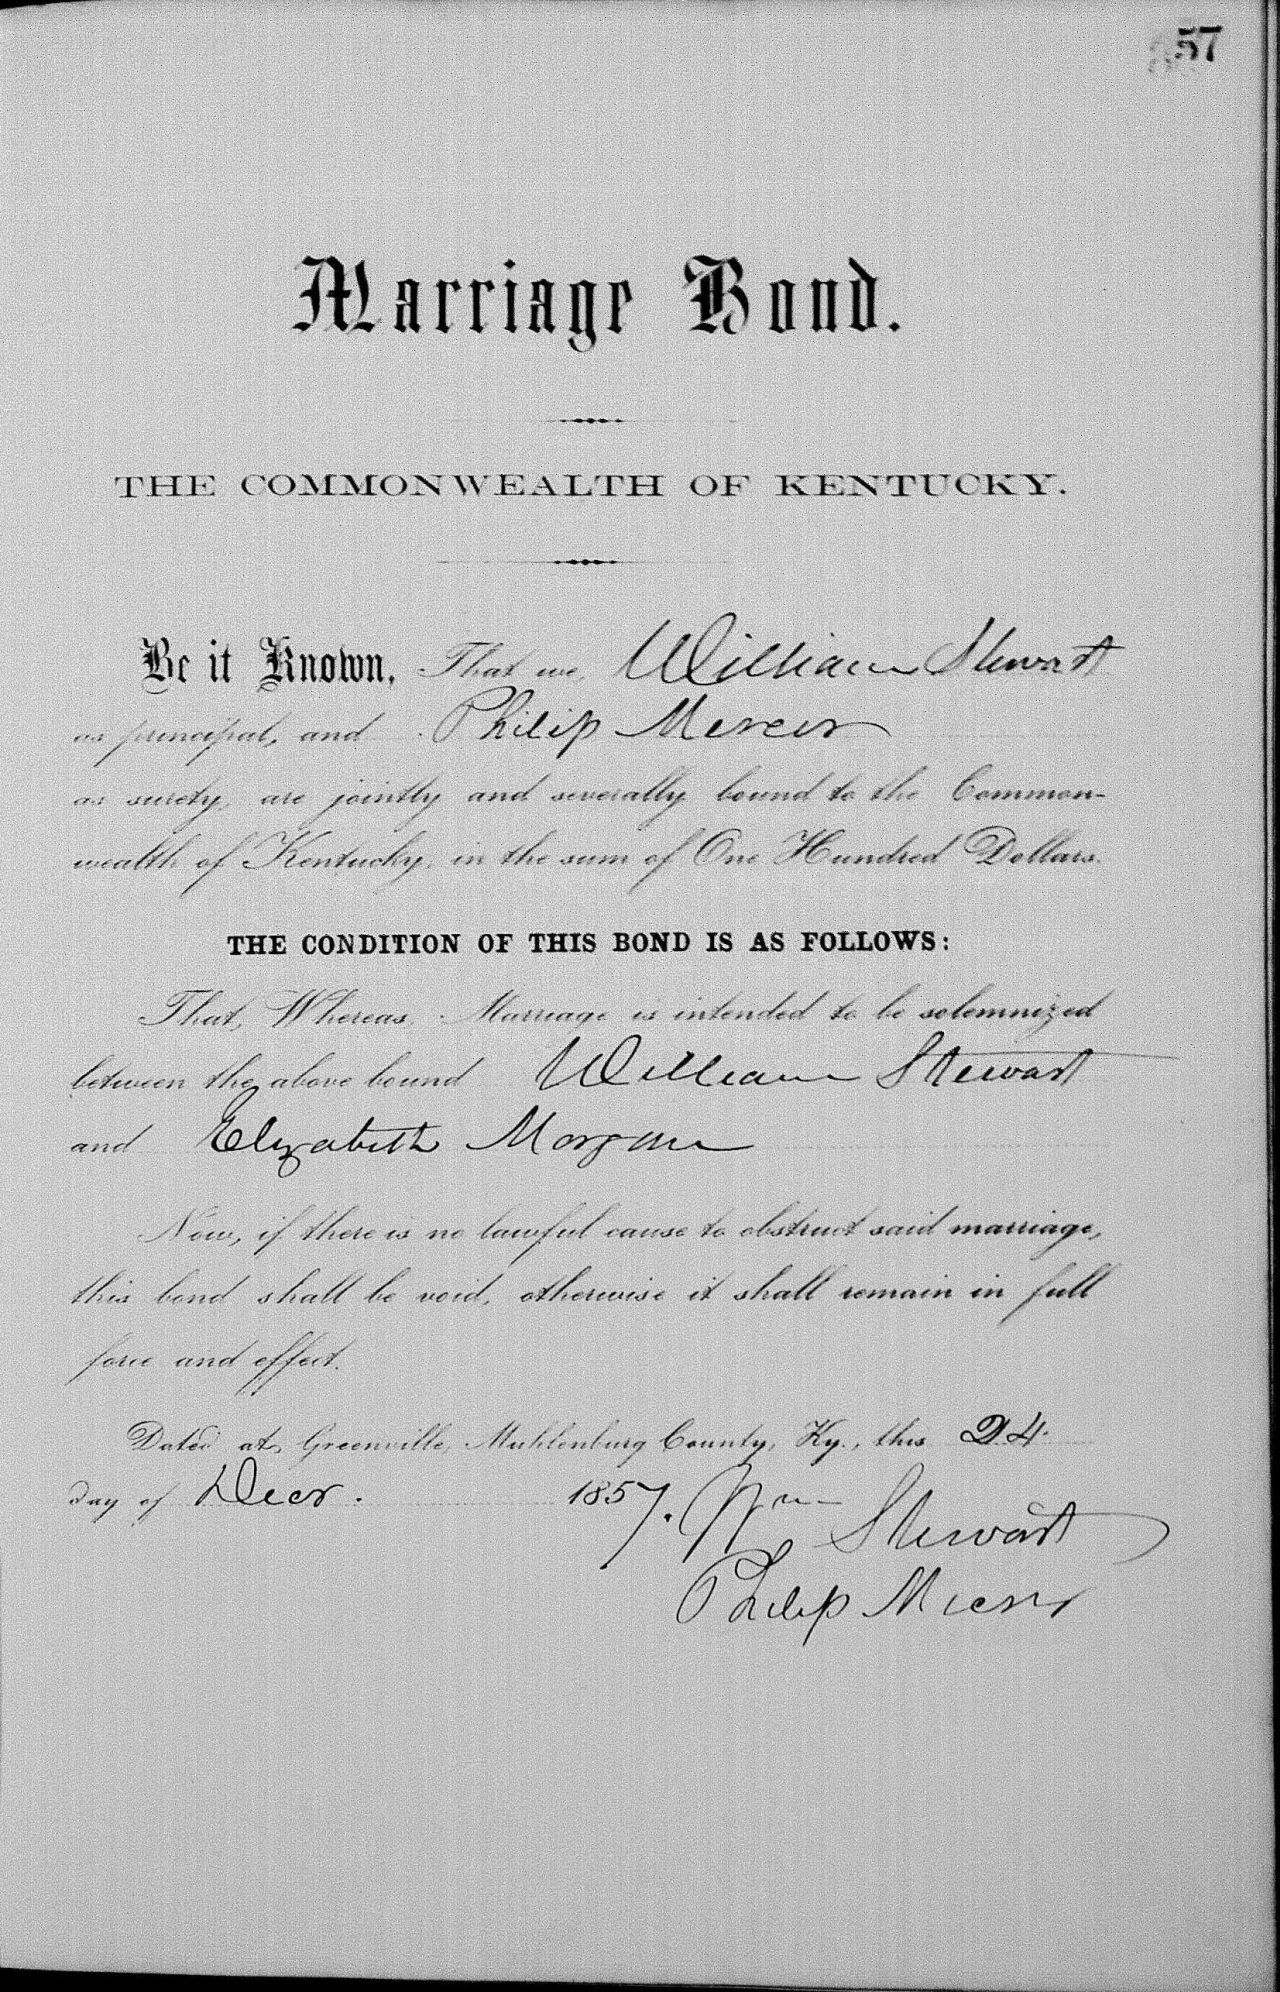 57
Marriage Bond.
THE COMMONWEALTH OF KENTUCKY.
Be it Known, That we, William Stewart
as principal, and Philip Mercer
as surety, are jointly and severally bound to the Common-
wealth of Kentucky, in the sum of One Hundred Dollars.
THE CONDITION OF THIS BOND IS AS FOLLOWS:
That, Whereas, Marriage is intended to be solemnized
between the above bound William Stewart
and Elizabeth Morgan
Now, if there is no lawful cause to obstruct said marriage,
this bond shall be void, otherwise it shall remain in full
force and effect.
Dated at Greenville, Muhlenburg County, Ky., this 24
day of Decr. 1857. Wm Stewart
Philip Mercer